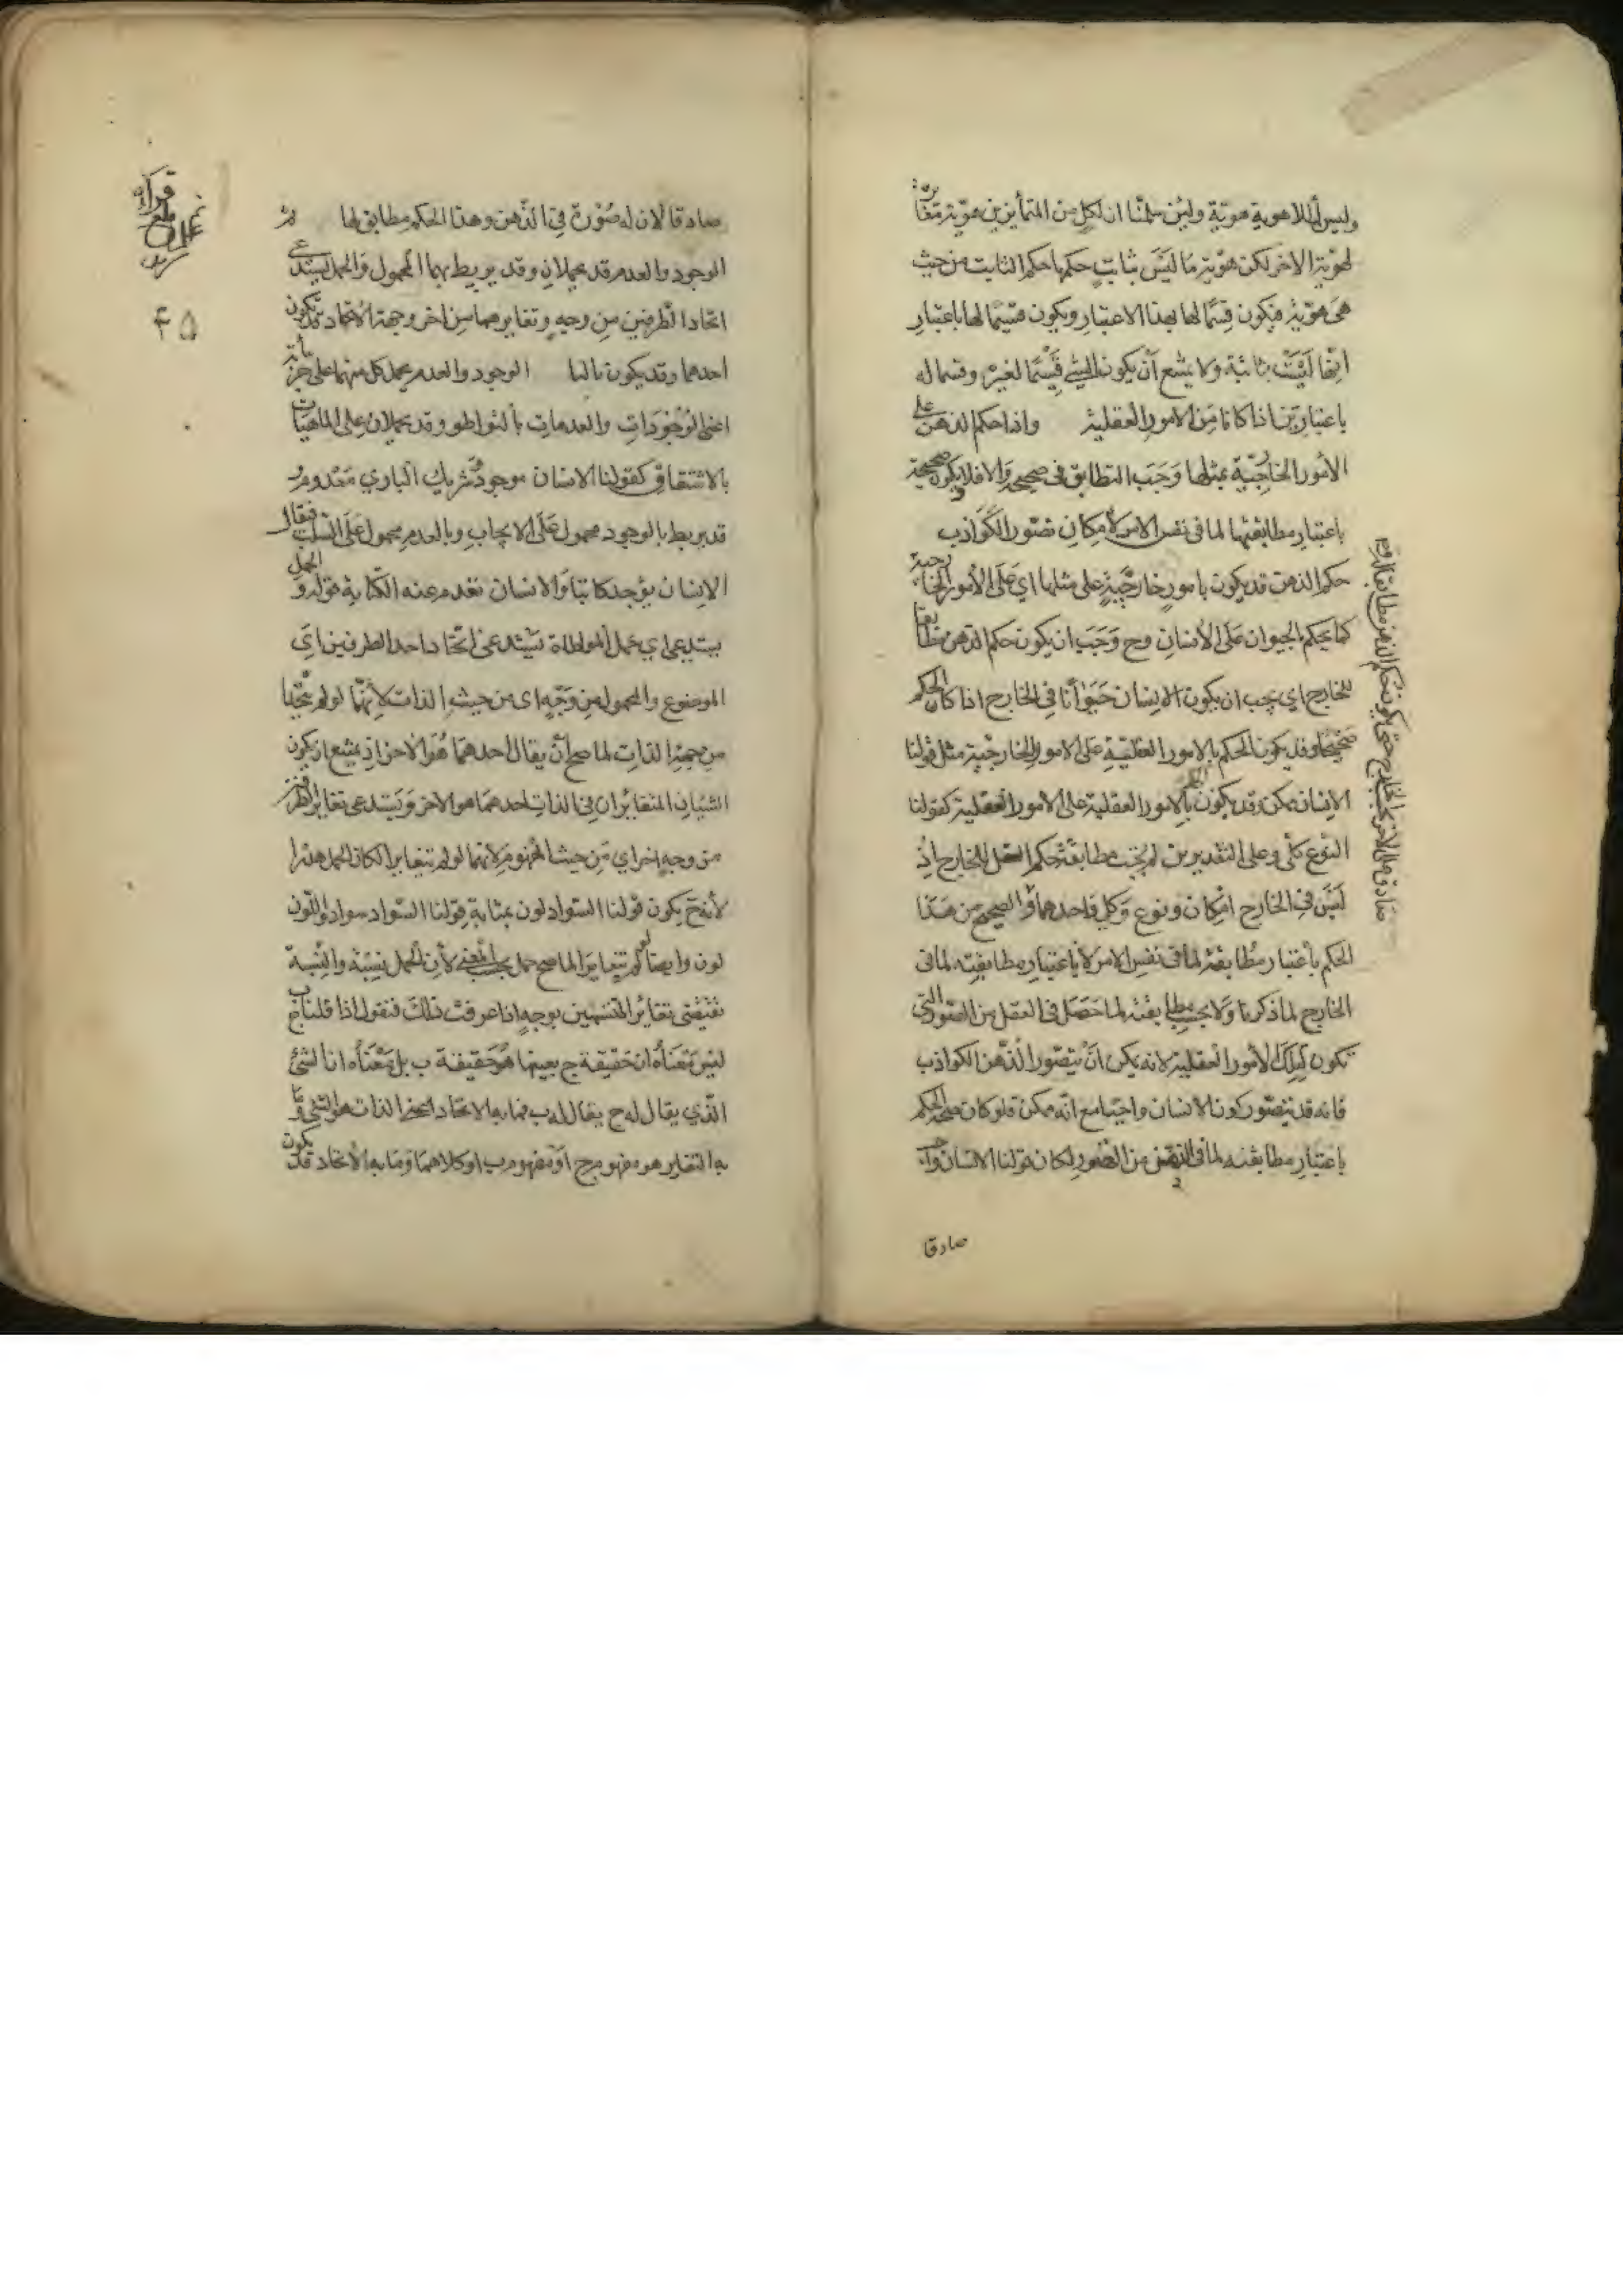 وليس للاهوية هوية ولئن سلمنا ان لكل من المتمايزين هوية مغايرة
لهوية الاخر لكن هوية ما ليس بثابت حكمها حكم الثابت من حيث
هي هوية فيكون قسما لها بهذا الاعتبار ويكون قسيما لها باعتبار
انها ليست ثابتة ولا يمتنع أن يكون الشي قسيما لغيره وقسما له
باعتبارين اذا كانا من الامور العقلية واذا حكم الذهن على
الأمور الخارجية بمثلها وجب التطابق في صحيحه والا فلا ويكون صحيحة
باعتبار مطابقتها لما في نفس الامر لامكان تصور الكواذب
حكم الذهن قد يكون بامور خارجية على مثلها اي على الأمور الخارجية
كما يحكم بالحيوان على الأنسان وح وجب ان يكون حكم الذهن مطابقا
للخارج اي يجب ان يكون الانسان حيوانا في الخارج اذا كان الحكم
صحيحا وقد يكون الحكم بالامور العقلية على الامور الخارجية مثل قولنا
الانسان ممكن وقد يكون بالامور العقلية على الامور العقلية كقولنا
النوع كلي وعلى التقديرين لم يجب مطابقة حكم العقل للخارج اذ
ليس في الخارج امكان ونوع وكل واحد هما والصحيح من هذا
الحكم باعتبار مطابقته لما في نفس الامر لا باعتبار مطابقته لما في
الخارج لما ذكرنا ولا بحسب مطابقته لما حصل في العقل من الصور التي
تكون لتلك الأمور العقلية لانه يمكن ان يتصور الذهن الكواذب
فانه قد يتصور كون الانسان واجبا مع انه ممكن فلو كان صحة الحكم
باعتبار مطابقته لما في النفس من الصور لكان قولنا الانسان واجب
صادقا
صادقا لان له صورة في الذهن وهذا الحكم مطابق لها ثم
الوجود والعدم قد يحملان وقد يربط بهما المحمول والحمل يستدعي
اتحاد الطرفين من وجه وتغايرهما من اخر وجهة الاتحاد قد تكون
احدهما وقد يكون ثالثا الوجود والعدم يحمل كل منهما على جزئياته
اعني الوجودات والعدمات بالتواطو وقد يحملان على الماهيات
بالاشتقاق كقولنا الانسان موجود وشريك الباري معدوم و
قد يربط بالوجود محمول على الايجاب وبالعدم محمول على السلب فيقال
الانسان يوجد كاتبا والانسان تعدم عنه الكتابة قوله والحمل
يستدعي اي حمل المواطاة يستدعي اتحاد احد الطرفين اي
الموضوع والمحمول من وجه اى من حيث الذات لأنهما لو لم يتحدا
من جهة الذات لما صح أن يقال احدهما هو الاخر اذ يمتنع ان يكون
الشيئان المتغايران في الذات احدهما هو الاخر ويستدعي تغاير الطرفين
من وجه اخر اي من حيث المفهوم لانهما لو لم يتغايرا لكان الحمل هذرا
لأنه ح يكون قولنا السواد لون بمثابة قولنا السواد سواد واللون
لون وايضا لو لم يتغايرا لما صح حمل بحسب المعنى لأن الحمل نسبة والنسبة
تقتضي تغاير المنتسبين بوجه اذا عرفت ذلك فنقول اذا قلنا ج ب
ليس معناه ان حقيقة ج بعينها هو حقيقة ب بل معناه ان الشئ
الذي يقال له ج يقال له ب فما به الاتحاد اعني الذات هو الشئ وما
به التغاير هو مفهوم ج او مفهوم ب او كلاهما وما به الاتحاد قد يكون
۴۵